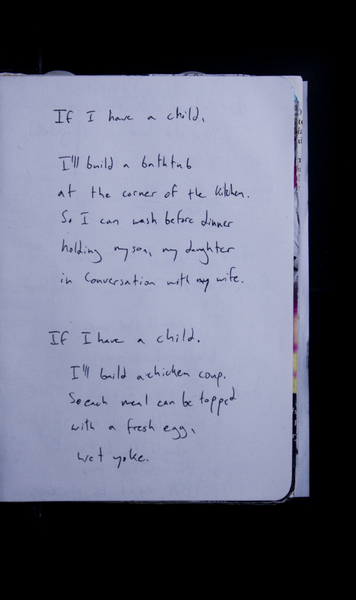 If I have a child,
I'll build a bathtub
at the corner of the kitchen.
So I can wash before dinner
holding my son, my daughter
in conversation with my wife.
If I have a child.
I'll build a chicken coup.
So each meal can be topped
with a fresh egg,
wet yoke.